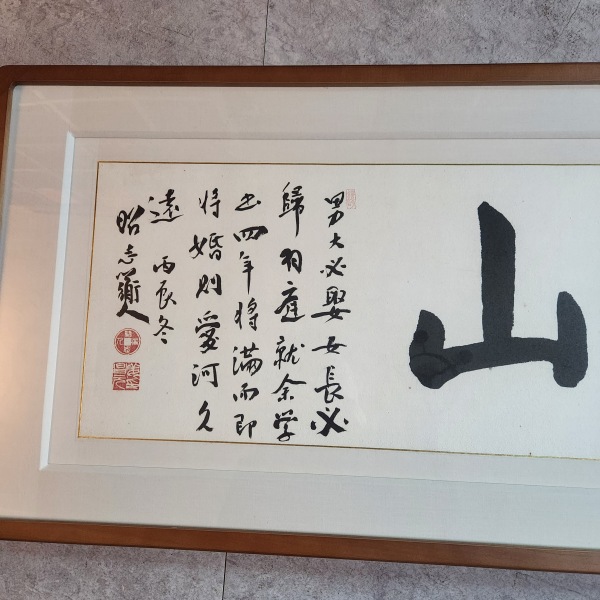 山
男大必娶女長必
歸羽庭就余学
书四年将滿而即
将婚则愛河久
遠 丙辰冬
昭志 人